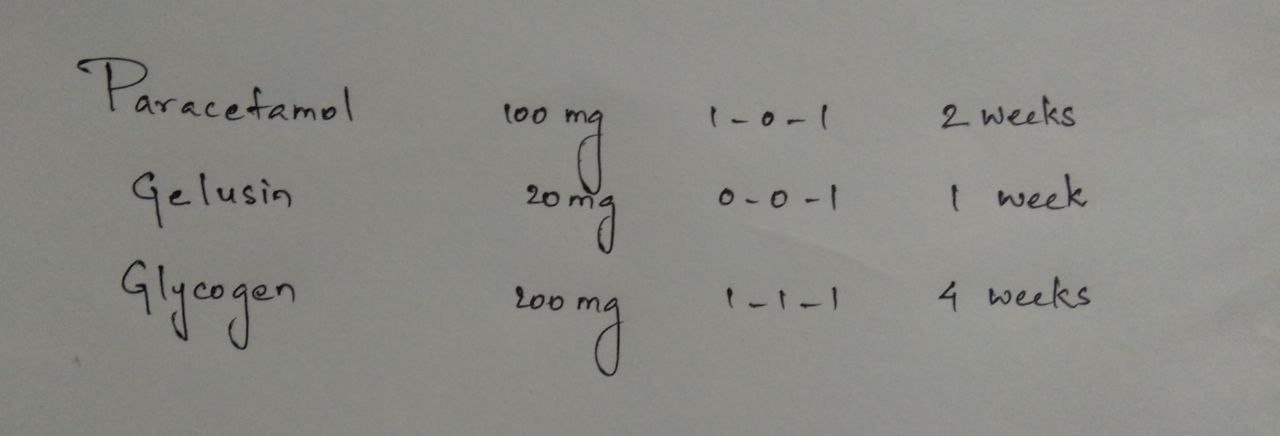 Paracetamol 100 mg 1-0-1 2 weeks
Gelusin 20 mg 0-0-1 1 week
Glycogen 200 mg 1-1-1 4 weeks